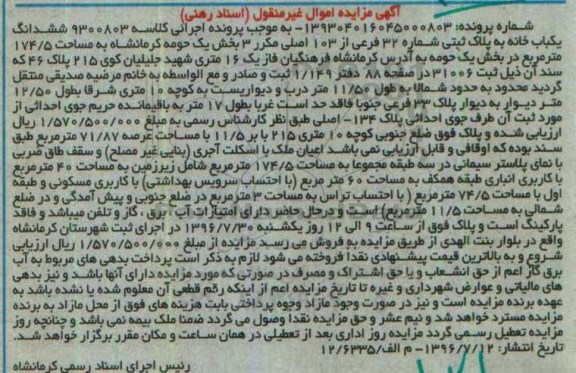 آگهی مزایده اموال غیرمنقول (اسناد رهنی)
شماره پرونده: ۱۳۹۳۰۴۰۱۶۰۴۵۰۰۰۸۰۳- به موجب پرونده اجرائی کلاسه ۹۳۰۰۸۰۳ ششدانگ
یکباب خانه به پلاک ثبتی شماره ۳۲ فرعی از ۱۰۳ اصلی مکرر ۳ بخش یک حومه کرمانشاه به مساحت ۱۷۴/۵
مترمربع در بخش یک حومه به آدرس کرمانشاه فرهنگیان فاز یک ۱۶ متری شهید جلیلیان کوی ۲۱۵ پلاک ۴۶ که
سند آن ذیل ثبت ۳۱۰۰۶ در صفحه ۸۸ دفتر ۱/۱۴۹ ثبت و صادر و مع الواسطه به خانم مرضیه صدیقی منتقل
گردید محدود به حدود شمالا به طول ۱۱/۵۰ متر درب و دیواریست به کوچه ۱۰ متری شرقا بطول ۱۲/۵۰
متر دیوار به دیوار پلاک ۳۳ فرعی جنوبا فاقد حد است غربا بطول ۱۷ متر به باقیمانده حریم جوی احداثی از
مورد ثبت آن طرف جوی احداثی پلاک ۱۳۴- اصلی طبق نظر کارشناس رسمی به مبلغ ۱/۵۷۰/۵۰۰/۰۰۰ ریال
ارزیابی شده و پلاک فوق ضلع جنوبی کوچه ۱۰ متری ۲۱۵ با بر ۱۱/۵ با مساحت عرصه ۷۱/۸۷ مترمربع طبق
سند بوده که اوقافی و قابل ارزیابی نمی باشد اعیان ملک با اسکلت آجری (بنایی غیر مصلح) و سقف طاق ضربی
با نمای پلاستر سیمانی در سه طبقه مجموعا به مساحت ۱۷۴/۵ مترمربع شامل زیرزمین به مساحت ۴۰ مترمربع
با کاربری انباری طبقه همکف به مساحت ۶۰ متر مربع (با احتساب سرویس بهداشتی) با کاربری مسکونی و طبقه
اول با مساحت ۷۴/۵ مترمربع ( با احتساب تراس به مساحت ۳ مترمربع در ضلع جنوبی و پیش آمدگی و در ضلع
شمالی به مساحت ۱۱/۵ مترمربع) است و درحال حاضر دارای امتیازات آب ، برق ، گاز و تلفن میباشد و فاقد
پارکینگ است و پلاک فوق از ساعت ۹ الی ۱۲ روز یکشنبه ۱۳۹۶/۷/۳۰ در اجرای ثبت شهرستان کرمانشاه
واقع در بلوار بنت الهدی از طریق مزایده به فروش می رسد مزایده از مبلغ ۱/۵۷۰/۵۰۰/۰۰۰ ریال ارزیابی
شروع و به بالاترین قیمت پیشنهادی نقدا فروخته می شود لازم به ذکر است پرداخت بدهی های مربوط به آب
برق گاز اعم از حق انشعاب و یا حق اشتراک و مصرف در صورتی که مورد مزایده دارای آنها باشد و نیز بدهی
های مالیاتی و عوارض شهرداری و غیره تا تاریخ مزایده اعم از اینکه رقم قطعی آن معلوم شده یا نشده باشد به
عهده برنده مزایده است و نیز در صورت وجود مازاد وجوه پرداختی بابت هزینه های فوق از محل مازاد به برنده
مزایده مسترد خواهد شد و نیم عشر و حق مزایده نقدا وصول می گردد ضمنا ملک بیمه نمی باشد و چنانچه روز
مزایده تعطیل رسمی گردد مزایده روز اداری بعد از تعطیلی در همان ساعت و مکان مقرر برگزار خواهد شد.
تاریخ انتشار: ۱۳۹۶/۷/۱۲- م الف/۱۲/۶۳۳۵
رئیس اجرای اسناد رسمی کرمانشاه